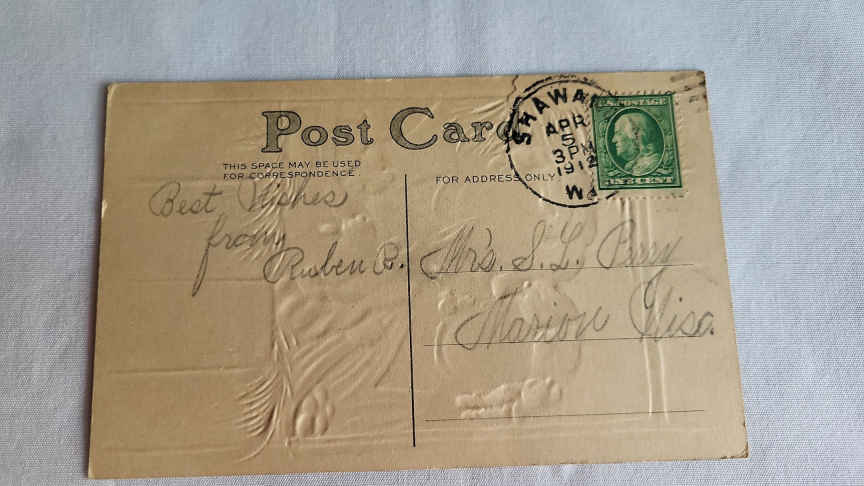 Post Card
THIS SPACE MAY BE USED
FOR CORRESPONDENCE.
FOR ADDRESS ONLY
SHAWA
APR
5
3 PM
1912
U.S. POSTAGE
CENT
Best Wishes
from
Ruben B.
Mrs. S. L. Perry
Marion Wisc.